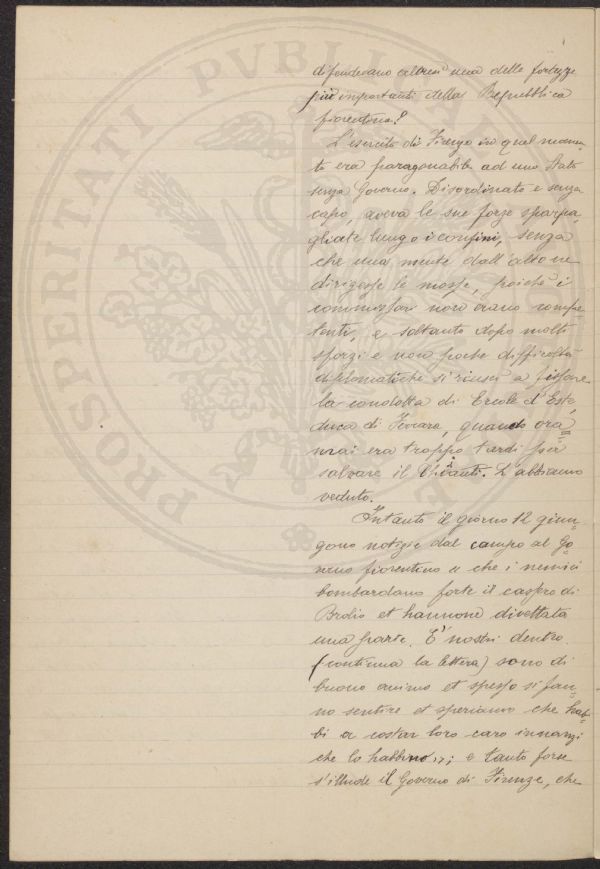 difendevano altresì una delle fortezze
più importanti della Repubblica
fiorentina?
L'esercito di Firenze in quel momen-
to era paragonabile ad uno Stato
senza Governo. Disordinato e senza
capo, aveva le sue forze sparpa-
gliate lungo i confini, senza
che una mente dall'alto ne
dirigesse le mosse, poichè i
commissari non erano compe-
tenti, e soltanto dopo molti
sforzi e non poche difficoltà
diplomatiche si riuscì a fissare
la condotta di Ercole d'Este,
duca di Ferrara, quando ora-
mai era troppo tardi per
salvare il Chianti. L'abbiamo
veduto.
Intanto il giorno 12 giun-
gono notizie dal campo al Go-
verno fiorentino « che i nemici
bombardano forte il cassero di
Brolio et hannone divettata
una parte. E' nostri dentro
(continua la lettera) sono di
buono animo et spesso si fan-
no sentire et speriamo che hab-
bi a costar loro caro innanzi
che lo habbino »; e tanto forse
s'illude il Governo di Firenze, che
PROSPERITATI PVBLICAE